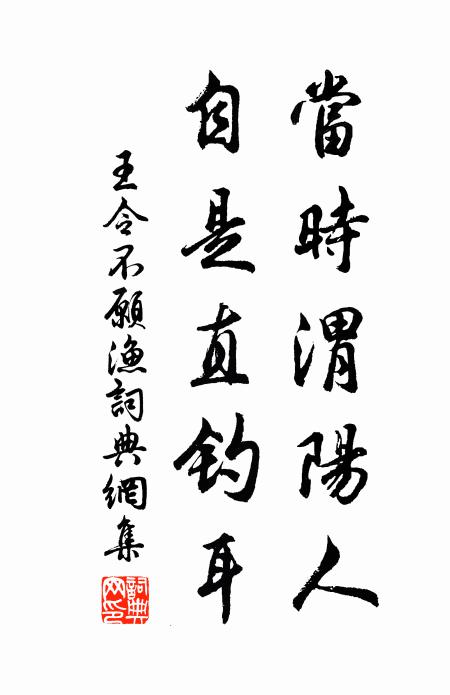 當時渭陽人
自是直釣耳
王令不願漁詞典網集
詞典網印